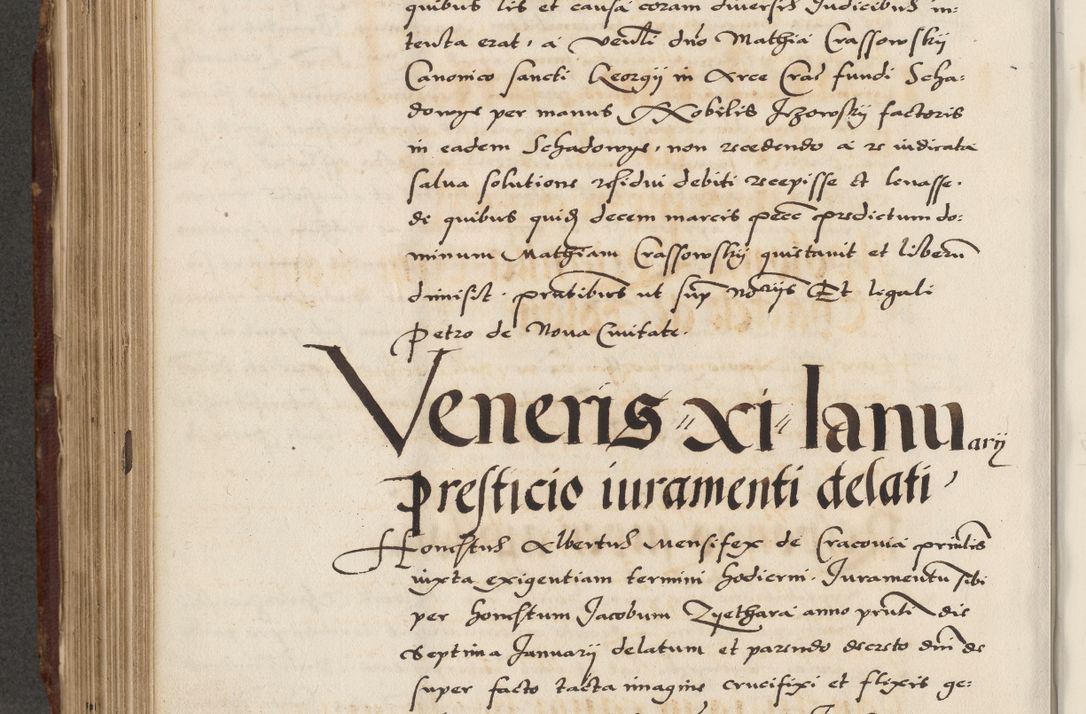 quibus lis et causa coram diversis Iudicibus in-
tenta erat, a venli dno Mathia Crassowskij
Canonico sancti Georgij in Arce Crac fundi Scha:
dowye per manus Nobilis Irzowskij factoris
in eadem Schadowye, non recedendo a re iudicata
salva solutione residui debiti recepisse et levasse.
de quibus quidem decem marcis pecc predictum do:
minum Mathiam Crassowskij quietavit et liberu
dimisit. pntibus ut sup notrijs Et legali
Petro de Nova Civitate.
Veneris xi Ianuarij
Presticio iuramenti delati,
Honestus Albertus Mensifex de Cracovia prinlis
iuxta exigentiam termini hodierni. Iuramentu sibi
per honestum Jacobum Zyethara anno pnti die
Septima Januarij delatum et parendo decreto dni de
super facto tacta imagine crucifixi et flexis ge: